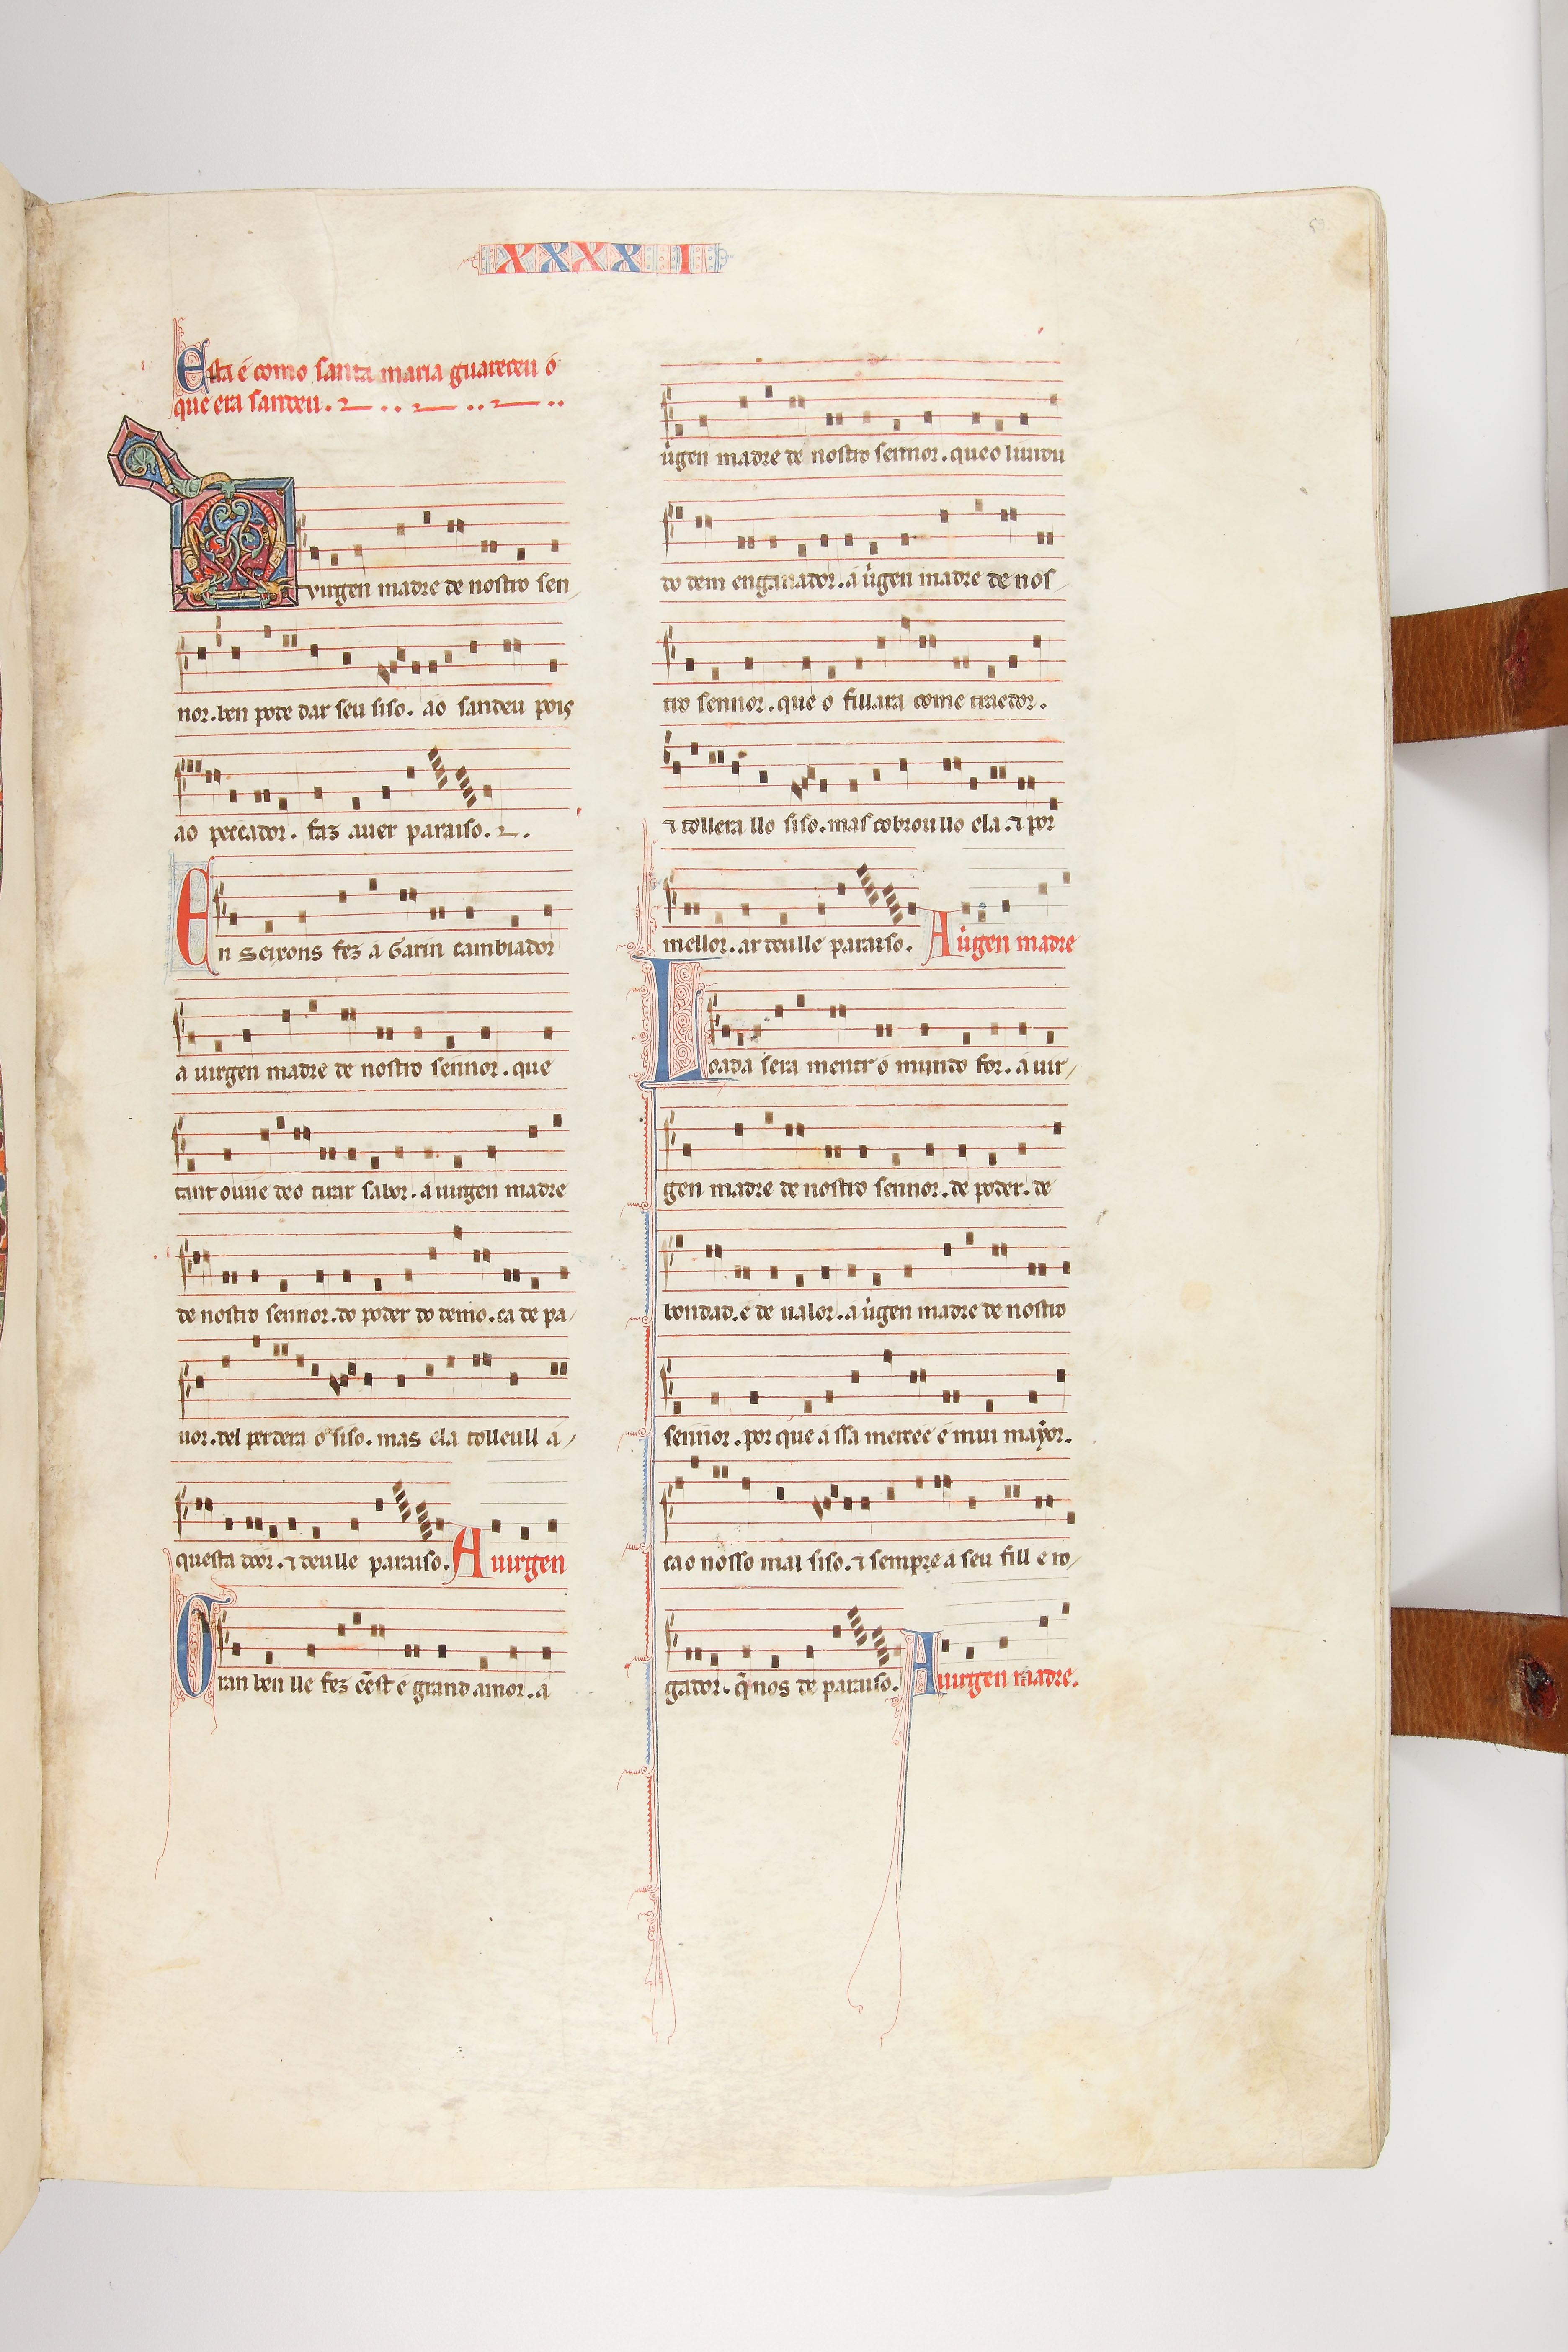 XXXXI
Esta é como santa maria guareceu ó
que era sandeu.
A virgen madre de nostro sen
nor. ben pode dar seu siso. áo sandeu pois
ao peccador. faz auer paraiso.
En seixons fez á Garin cambiador
a uirgen madre de nostro sennor. que
tant ouue deo tirar sabor. a uirgen madre
de nostro sennor. do poder do demo. ca de pa
uor. del perdera o siso. mas ela tolleull á
questa door. ⁊ deulle paraiso. A uirgen
Gran ben lle fez en est e grand amor. a
uirgen madre de nostro sennor. que o liurou
do dem enganador. a uirgen madre de nos
tro sennor. que o fillara come traedor.
⁊ tollera llo siso. mas cobroullo ela. ⁊ por
mellor. ar deulle paraiso. A uirgen madre
Loada sera mentr o mundo for. a uir
gen madre de nostro sennor. de poder. de
bondad. e de ualor. a uirgen madre de nostro
sennor. por que á ssa mercee é mui mayor.
ca o nosso mal siso. ⁊ sempre a seu fill e ro
gador. q̃ nos de paraiso. A uirgen madre.